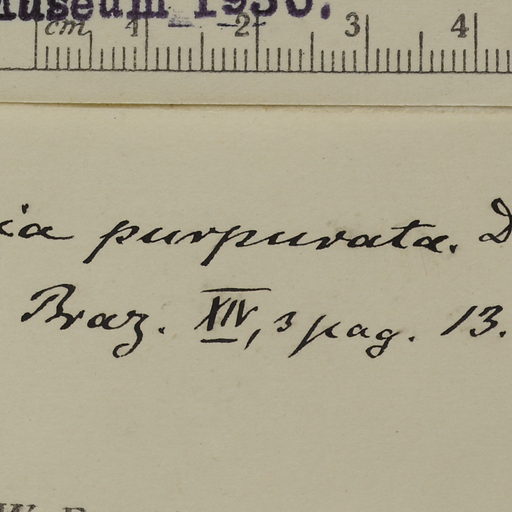 Museum 1930.
cm 1 2 3 4
purpurata. D
Braz. XIV, 3 pag. 13.